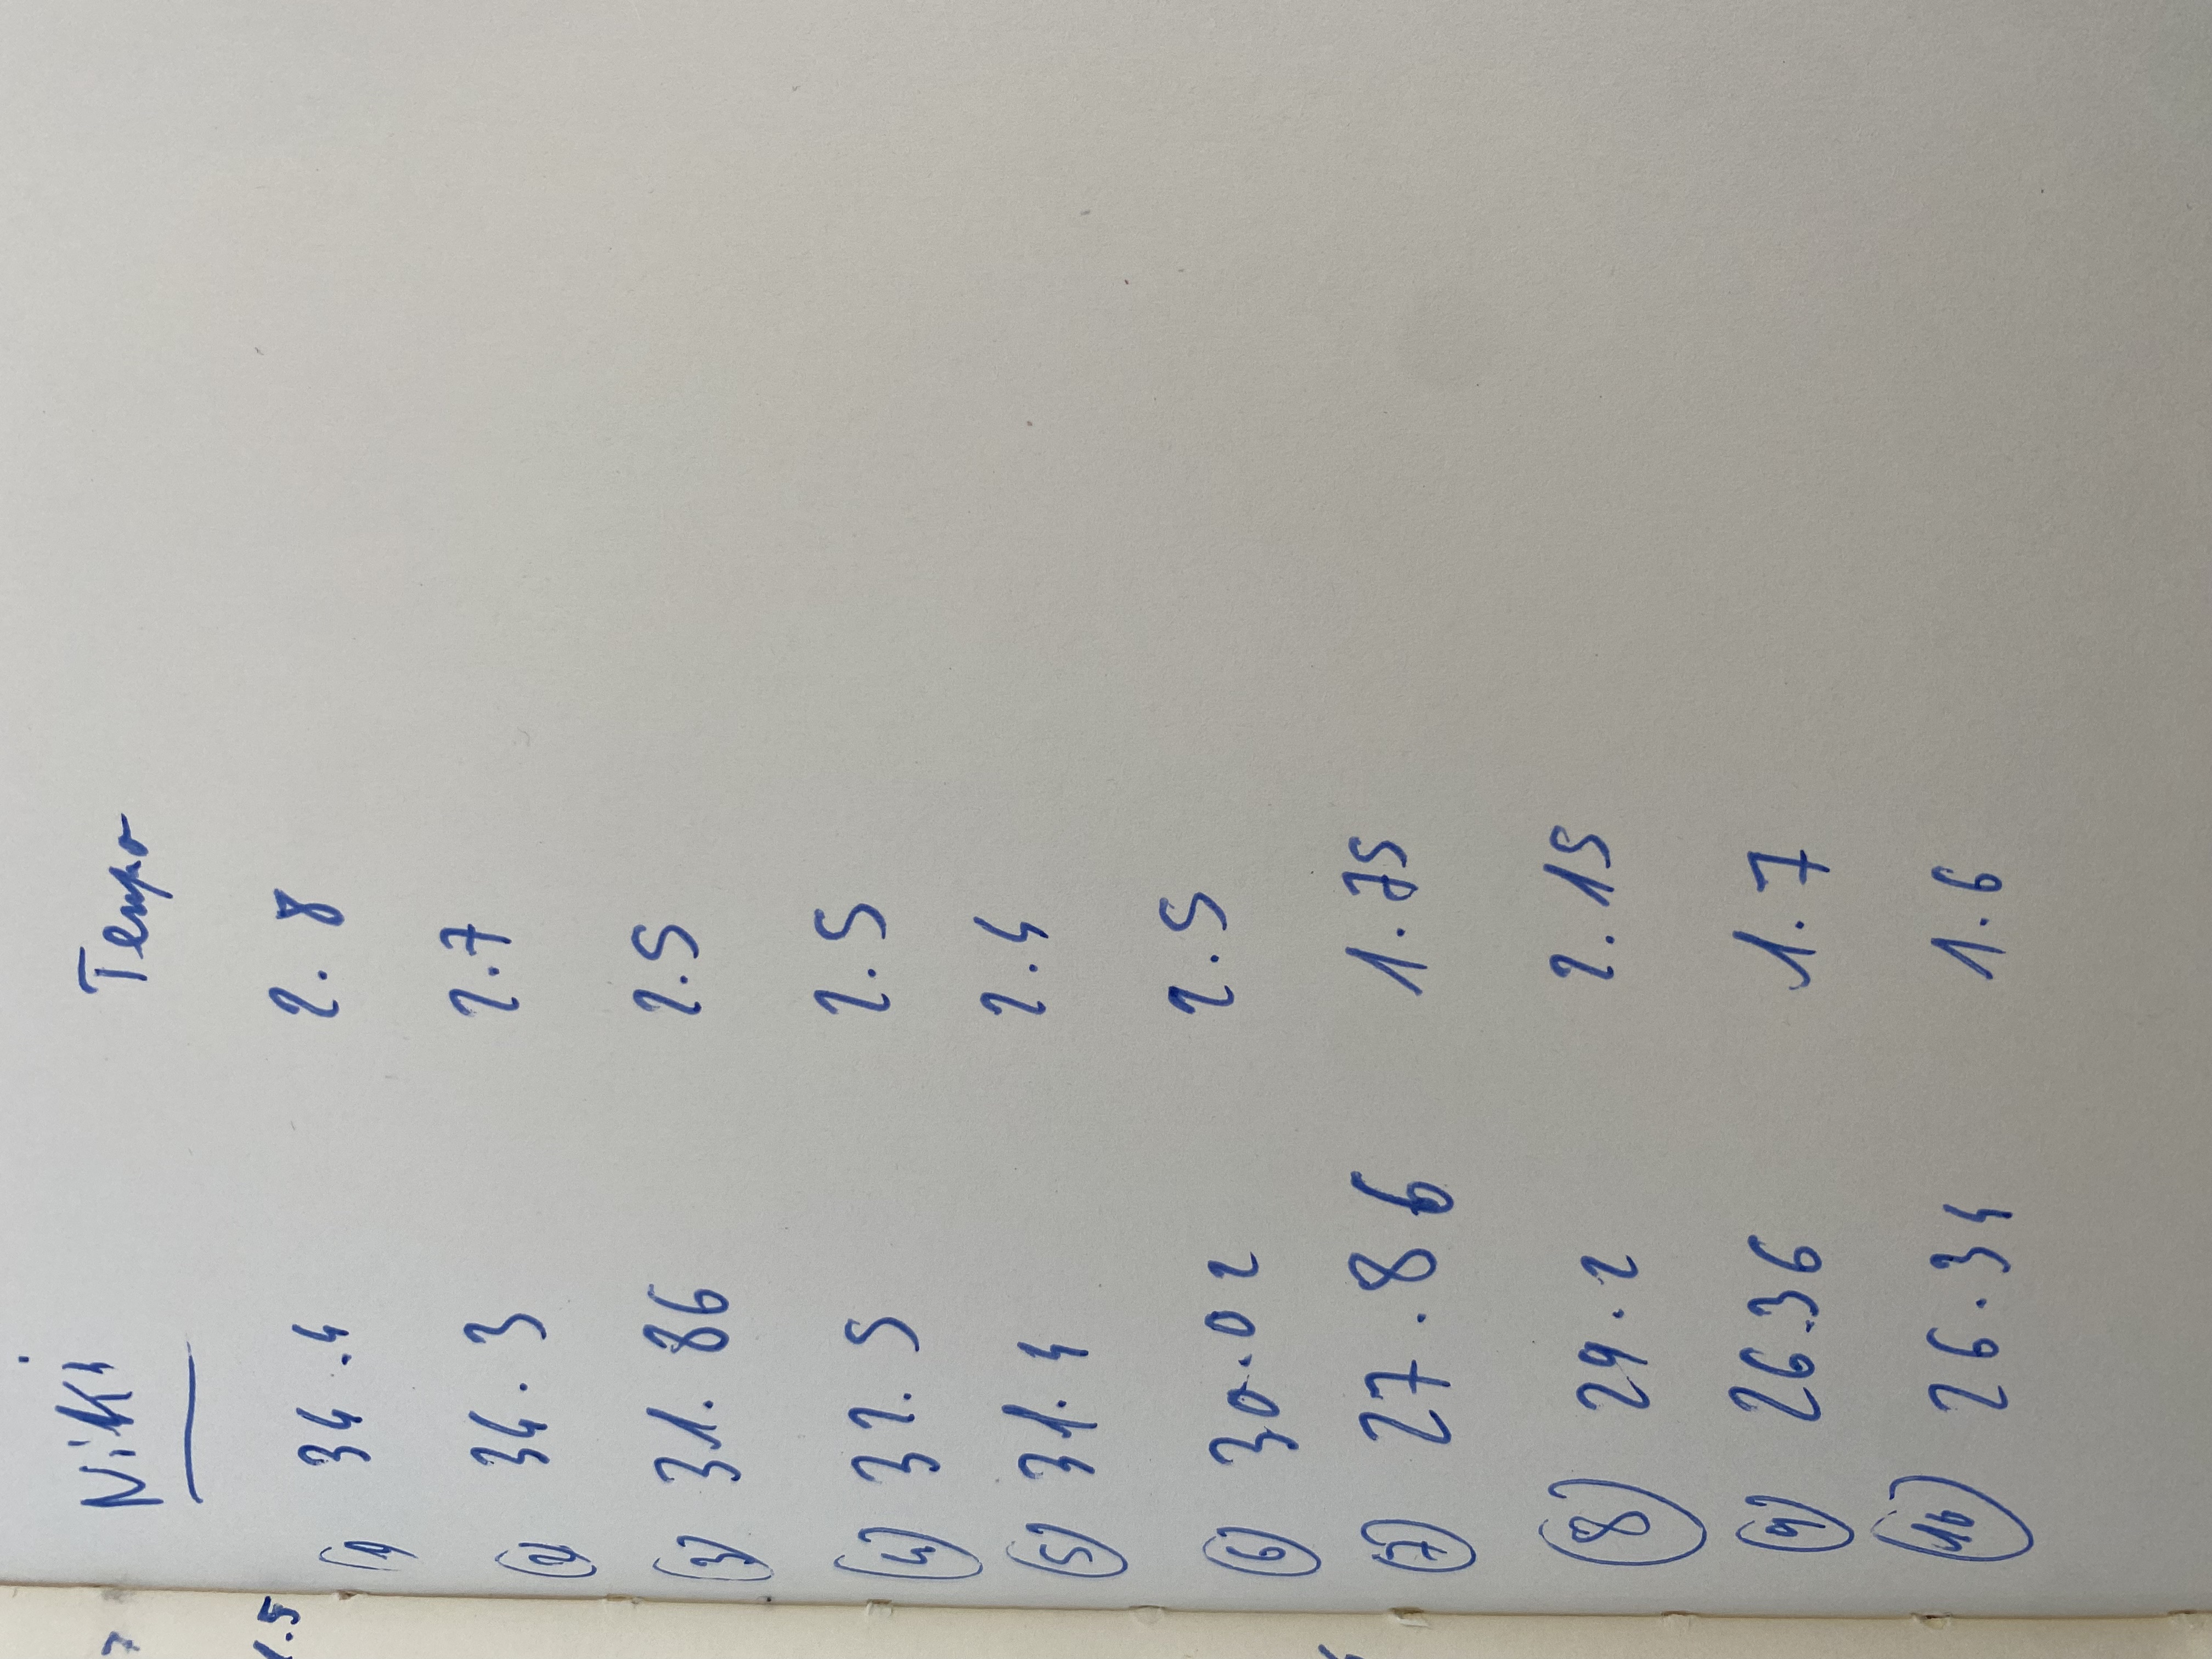 Niki Tempo
1 34.4 2.8
2 34.3 2.7
3 31.86 2.5
4 32.5 2.5
5 31.4 2.4
6 30.02 2.5
7 27.86 1.75
8 29.2 2.15
9 26.36 1.7
10 26.34 1.6
1.5